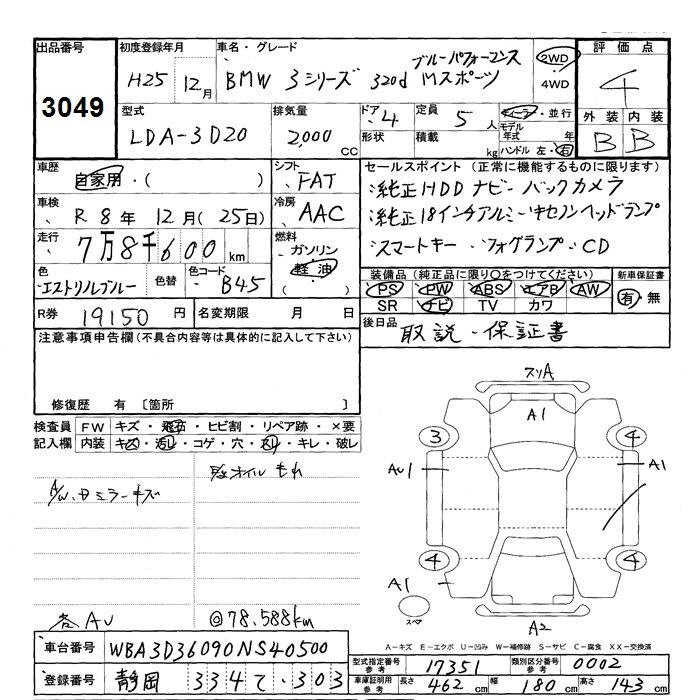 出品番号
3049
初度登録年月
H25 12月
車名・グレード
ブルーパフォーマンス
BMW 3シリーズ 320d Mスポーツ
2WD
・
4WD
評価点
4
外装 内装
B B
型式
LDA-3D20
排気量
2,000 cc
ドア 4
形状
定員 5 人
積載 kg
ディーラー・並行
モデル
年式 年
ハンドル 左・右
車歴
自家用・( )
シフト
FAT
車検
R 8年 12月(25日)
冷房
AAC
走行
7万8千600km
燃料
ガソリン
軽油
( )
色
エストリルブルー
色替
色コード
B45
R券 19150円
名変期限 月 日
セールスポイント(正常に機能するものに限ります)
純正HDDナビ・バックカメラ
純正18インチアルミ・キセノンヘッドランプ
スマートキー・フォグランプ・CD
装備品(純正品に限り○をつけてください)
PS PW ABS エアB AW
SR ナビ TV カワ
新車保証書
有・無
後日品
取説・保証書
注意事項申告欄(不具合内容等は具体的に記入して下さい)
修復歴 有〔箇所 〕
検査員 FW キズ・飛石・ヒビ割・リペア跡・×要
記入欄 内装 キズ・汚レ・コゲ・穴・スレ・キレ・破レ
オイルもれ
A/W、Dミラーキズ
各AU
◎78.588km
スリA
A1
3
4
AU1
A1
4
4
A1
スペア
A2
A-キズ E-エクボ U-凹み W-補修跡 S-サビ C-腐食 XX-交換済
車台番号 WBA3D36090NS40500
登録番号 静岡 334て・303
型式指定番号
参考
17351
類別区分番号
参考
0002
車庫証明用
参考
長さ 462cm 幅 180cm 高さ 143cm